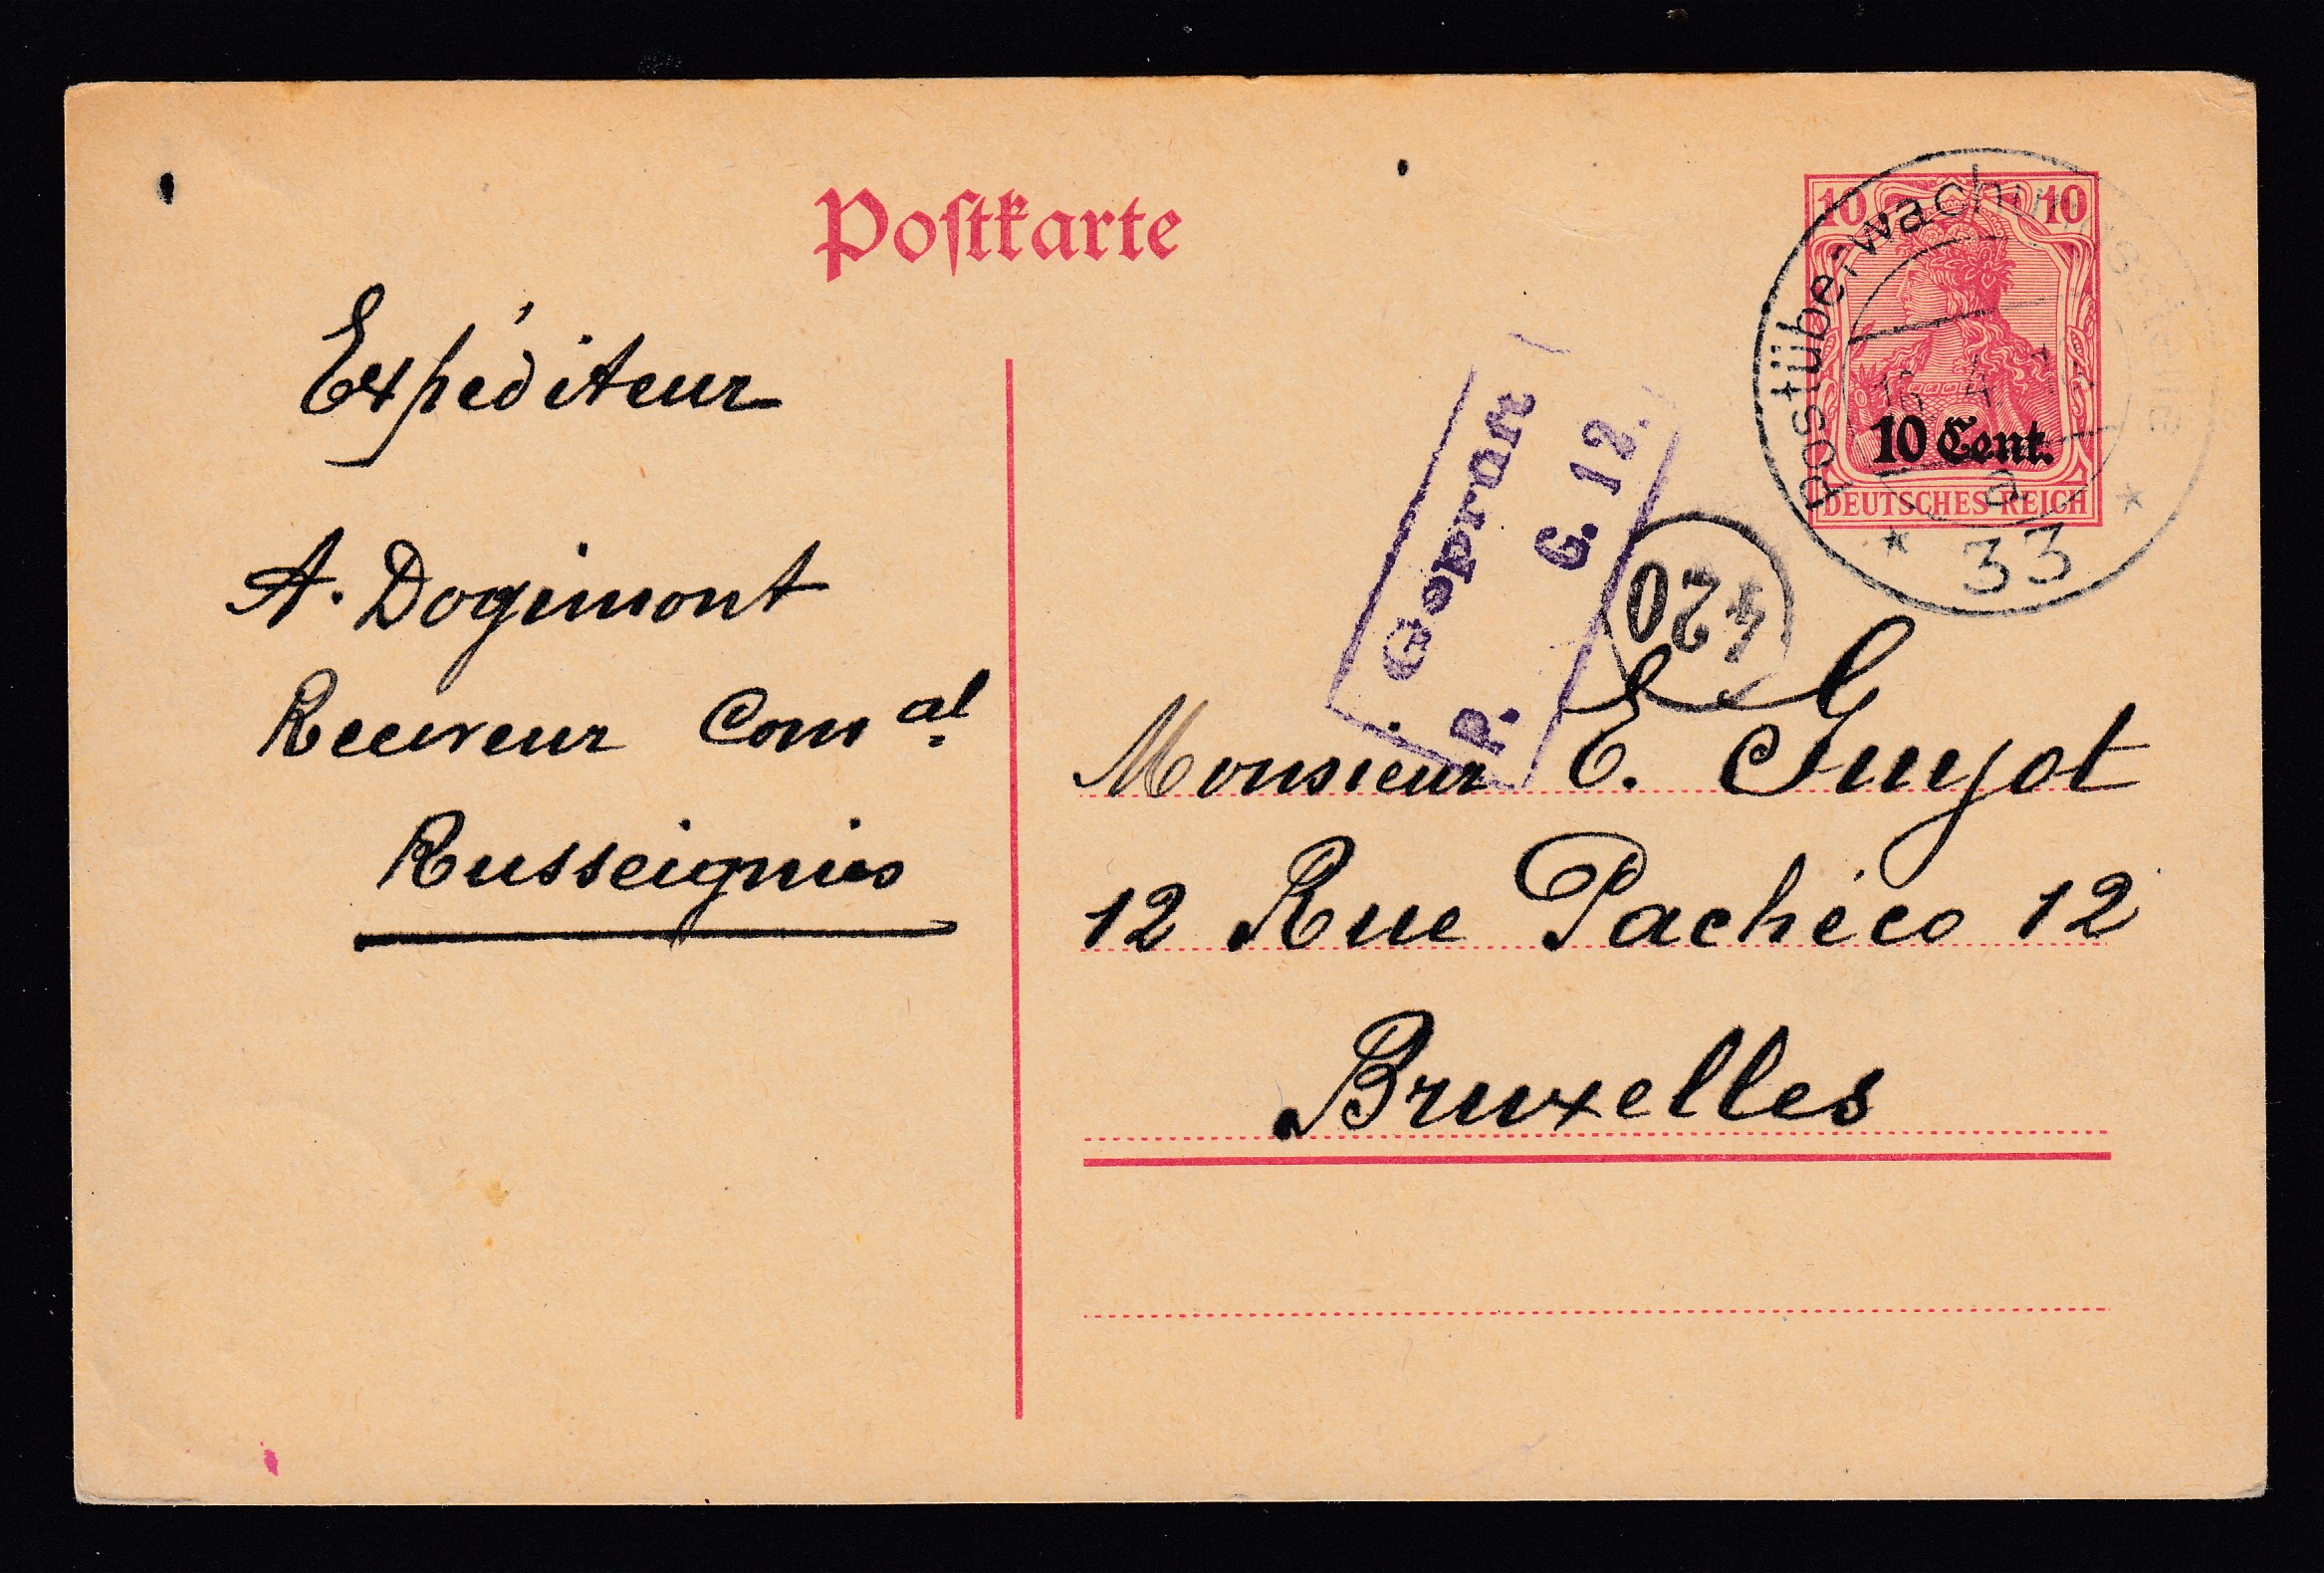 Postkarte
Expéditeur
A. Dogimont
Receveur Com al.
Russeignies
10 10
10 Cent.
DEUTSCHES REICH
Postüberwachungsstelle
18 4
a
* 33 *
Geprüft
P. G. 12.
420
Monsieur E. Guyot
12 Rue Pachéco 12
Bruxelles